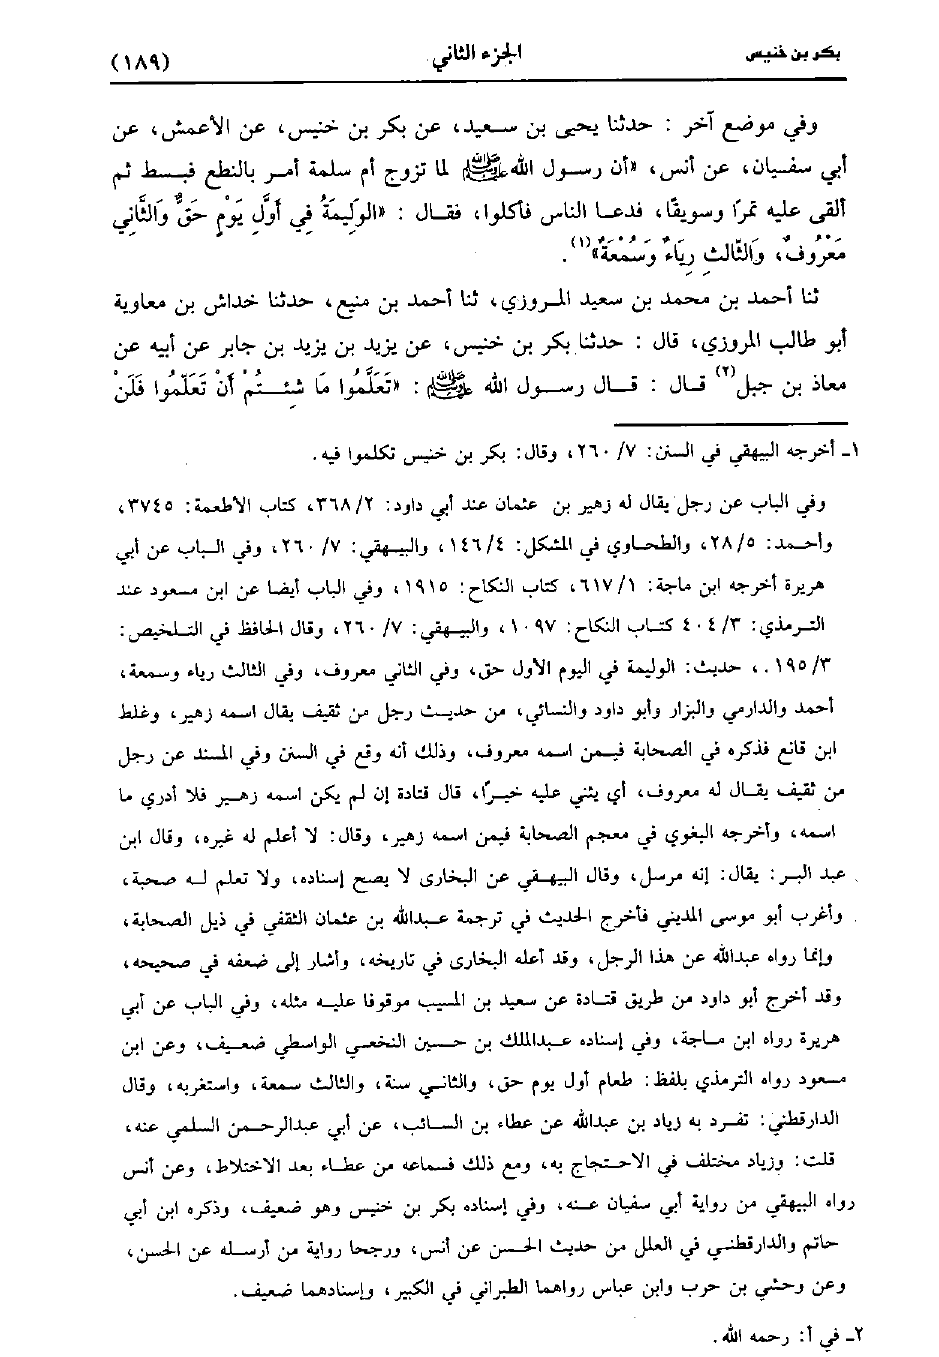 بكر بن خنيس الجزء الثاني (١٨٩)
وفي موضع آخر : حدثنا يحيى بن سعيد، عن بكر بن خنيس، عن الأعمش، عن
أبي سفيان، عن أنس، «أن رسول الله ﷺ لما تزوج أم سلمة أمر بالنطع فبسط ثم
ألقى عليه تمرًا وسويقًا، فدعا الناس فأكلوا، فقال : «الوَلِيمَةُ فِي أَوَّلِ يَوْمٍ حَقٌّ وَالثَّانِي
مَعْرُوفٌ، وَالثَّالِثِ رِيَاءٌ وَسُمْعَةٌ»(١).
ثنا أحمد بن محمد بن سعيد المروزي، ثنا أحمد بن منيع، حدثنا خداش بن معاوية
أبو طالب المروزي، قال : حدثنا بكر بن خنيس، عن يزيد بن يزيد بن جابر عن أبيه عن
معاذ بن جبل(٢) قال : قال رسول الله ﷺ : «تَعَلَّمُوا مَا شِئْتُمْ أَنْ تَعَلَّمُوا فَلَنْ
١ـ أخرجه البيهقي في السنن: ٧/ ٢٦٠، وقال: بكر بن خنيس تكلموا فيه.
وفي الباب عن رجل يقال له زهير بن عثمان عند أبي داود: ٣٦٨/٢، كتاب الأطعمة: ٣٧٤٥،
وأحمد: ٢٨/٥، والطحاوي في المشكل: ١٤٦/٤، والبيهقي: ٧/ ٢٦٠، وفي الباب عن أبي
هريرة أخرجه ابن ماجة: ٦١٧/١، كتاب النكاح: ١٩١٥، وفي الباب أيضا عن ابن مسعود عند
الترمذي: ٤٠٤/٣ كتاب النكاح: ١٠٩٧، والبيهقي: ٢٦٠/٧، وقال الحافظ في التلخيص:
١٩٥/٣.، حديث: الوليمة في اليوم الأول حق، وفي الثاني معروف، وفي الثالث رياء وسمعة،
أحمد والدارمي والبزار وأبو داود والنسائي، من حديث رجل من ثقيف يقال اسمه زهير، وغلط
ابن قانع فذكره في الصحابة فيمن اسمه معروف، وذلك أنه وقع في السنن وفي المسند عن رجل
من ثقيف يقال له معروف، أي يثني عليه خيرًا، قال قتادة إن لم يكن اسمه زهير فلا أدري ما
اسمه، وأخرجه البغوي في معجم الصحابة فيمن اسمه زهير، وقال: لا أعلم له غيره، وقال ابن
عبد البر: يقال: إنه مرسل، وقال البيهقي عن البخارى لا يصح إسناده، ولا تعلم له صحبة،
وأغرب أبو موسى المديني فأخرج الحديث في ترجمة عبدالله بن عثمان الثقفي في ذيل الصحابة،
وإنما رواه عبدالله عن هذا الرجل، وقد أعله البخارى في تاريخه، وأشار إلى ضعفه في صحيحه،
وقد أخرج أبو داود من طريق قتادة عن سعيد بن المسيب موقوفا عليه مثله، وفي الباب عن أبي
هريرة رواه ابن ماجة، وفي إسناده عبدالملك بن حسين النخعي الواسطي ضعيف، وعن ابن
مسعود رواه الترمذي بلفظ: طعام أول يوم حق، والثاني سنة، والثالث سمعة، واستغربه، وقال
الدارقطني: تفرد به زياد بن عبدالله عن عطاء بن السائب، عن أبي عبدالرحمن السلمي عنه،
قلت: وزياد مختلف في الاحتجاج به، ومع ذلك فسماعه من عطاء بعد الاختلاط، وعن أنس
رواه البيهقي من رواية أبي سفيان عنه، وفي إسناده بكر بن خنيس وهو ضعيف، وذكره ابن أبي
حاتم والدارقطني في العلل من حديث الحسن عن أنس، ورجحا رواية من أرسله عن الحسن،
وعن وحشي بن حرب وابن عباس رواهما الطبراني في الكبير، وإسنادهما ضعيف.
٢ـ في أ: رحمه الله.